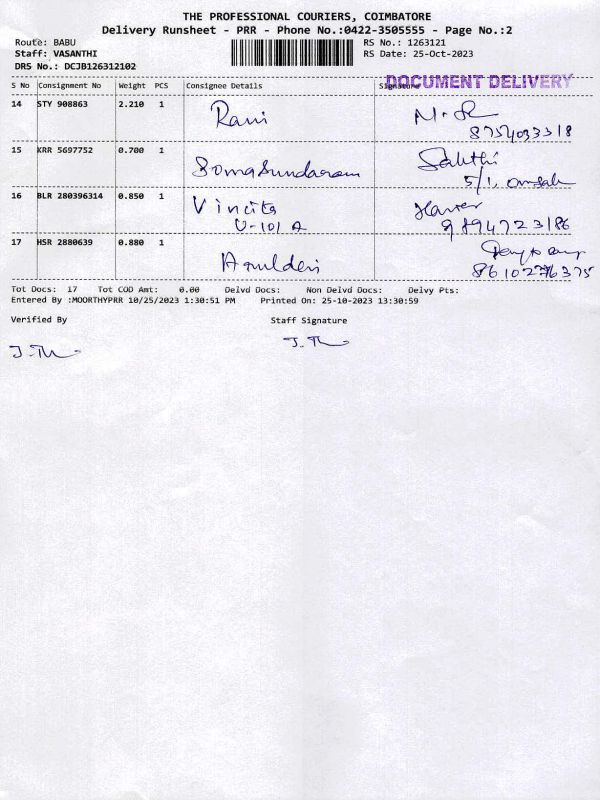 THE PROFESSIONAL COURIERS, COIMBATORE
Delivery Runsheet - PRR - Phone No.:0422-3505555 - Page No.:2
Route: BABU RS No.: 1263121
Staff: VASANTHI RS Date: 25-Oct-2023
DRS No.: DCJB126312102
DOCUMENT DELIVERY
S No Consignment No Weight PCS Consignee Details Signature
14 STY 908863 2.210 1 Rani
8754033318
15 KRR 5697752 0.700 1 Somasundaram Sakthi
5/1,
16 BLR 280396314 0.850 1 Vincita
U-101 A 9894723186
17 HSR 2880639 0.880 1 Aruldevi
8610276375
Tot Docs: 17 Tot COD Amt: 0.00 Delvd Docs: Non Delvd Docs: Delvy Pts:
Entered By :MOORTHYPRR 10/25/2023 1:30:51 PM Printed On: 25-10-2023 13:30:59
Verified By Staff Signature